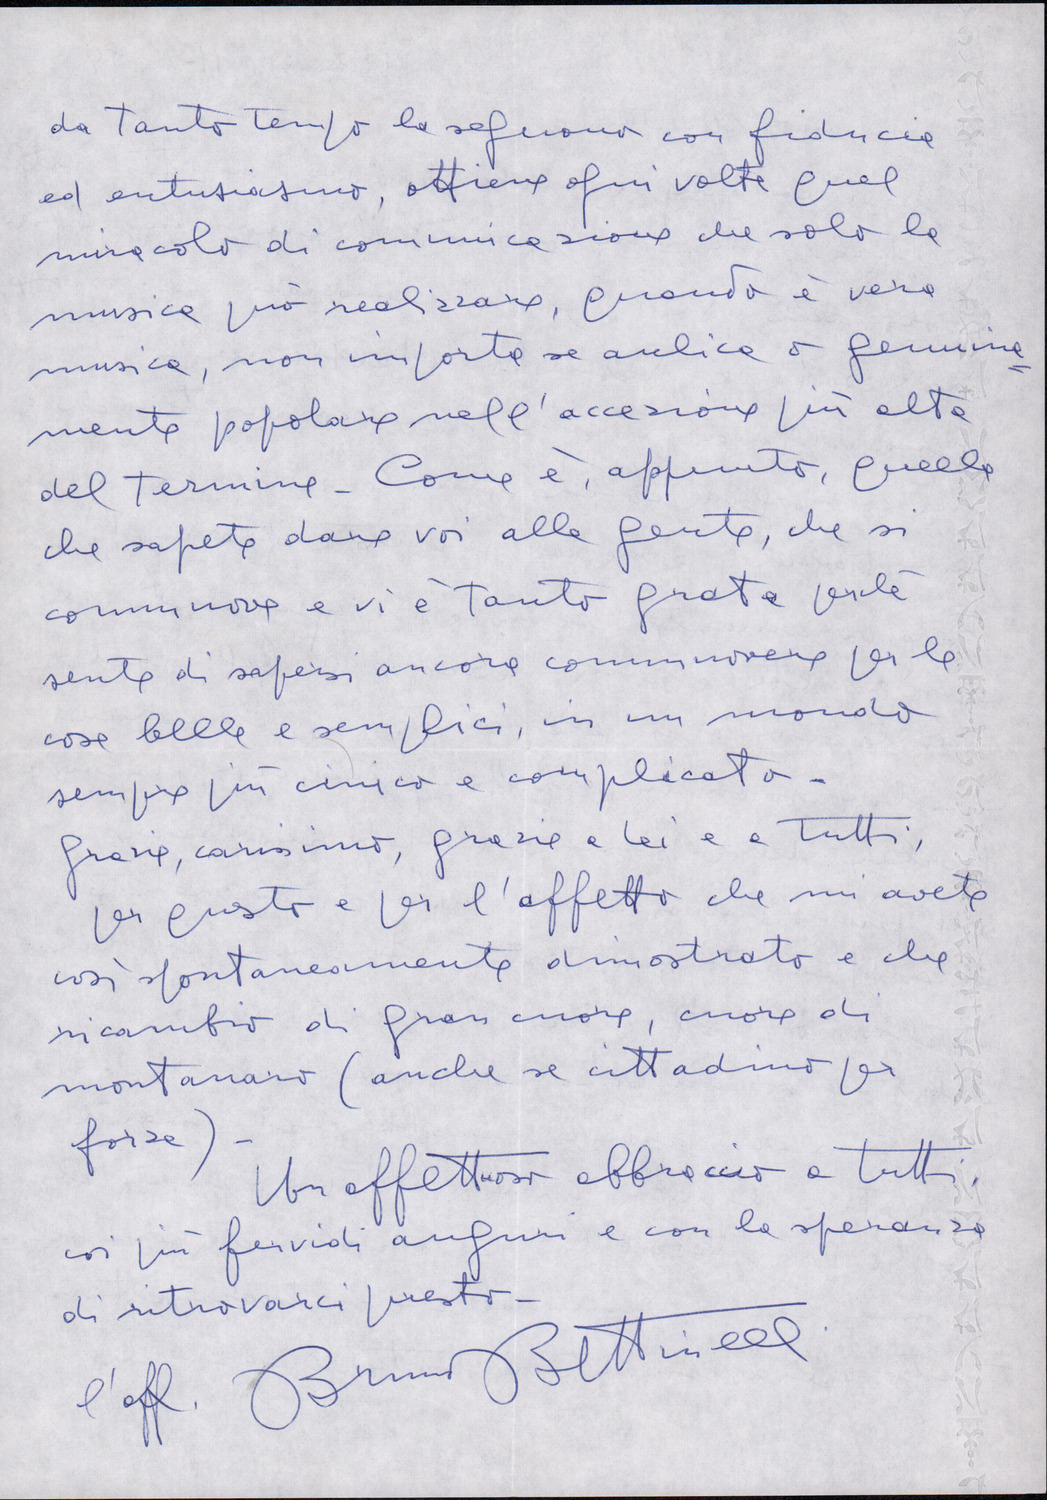 da tanto tempo la seguono con fiducia
ed entusiasmo, ottiene ogni volta quel
miracolo di comunicazione che solo la
musica può realizzare, quando è vera
musica, non importa se aulica o genuina=
mente popolare nell'accezione più alta
del termine - Come è, appunto, quella
che sapete dare voi alla gente, che si
commuove e vi è tanto grata perchè
sente di sapersi ancora commuovere per le
cose belle e semplici, in un mondo
sempre più cinico e complicato -
Grazie, carissimo, grazie a lei e a tutti,
per questo e per l'affetto che mi avete
così spontaneamente dimostrato e che
ricambio di gran cuore, cuore di
montanaro (anche se cittadino per
forza) -
Un affettuoso abbraccio a tutti,
coi più fervidi auguri e con la speranza
di ritrovarci presto -
l'aff. Bruno Bettinelli